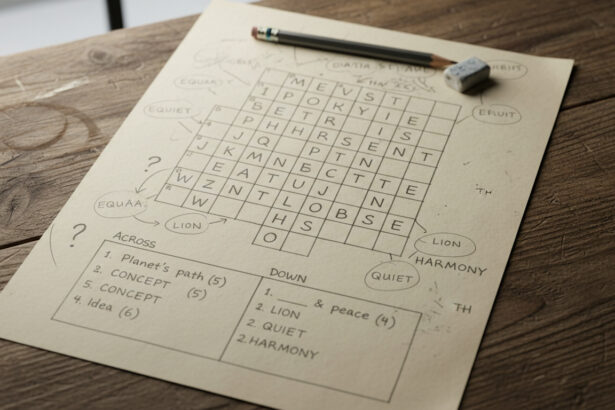 EQUAA
EQUIET
EFRUIT
M E V S T
I P O K Y I E
B E T R I S
P H H R S E N T
J Q P T N I
J K M N B C T T E
W E A T U J N
W Z N T L O B S E
W H S
O
?
EQUAA
LION
?
LION
HARMONY
QUIET
TH
TH
ACROSS
1. Planet's path (5)
2. CONCEPT (5)
5. CONCEPT
4. Idea (6)
DOWN
1. ____ & peace (4)
2. LION
2. QUIET
2. HARMONY